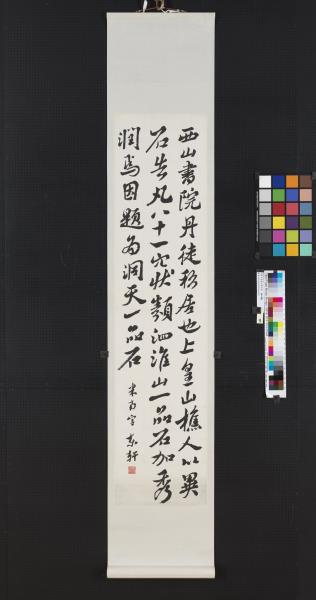 西山書院丹徒私居也上皇山樵人以異
石告凡八十一穴狀類泗淮山一品石加秀
潤焉因題為洞天一品石
米芾字 東軒